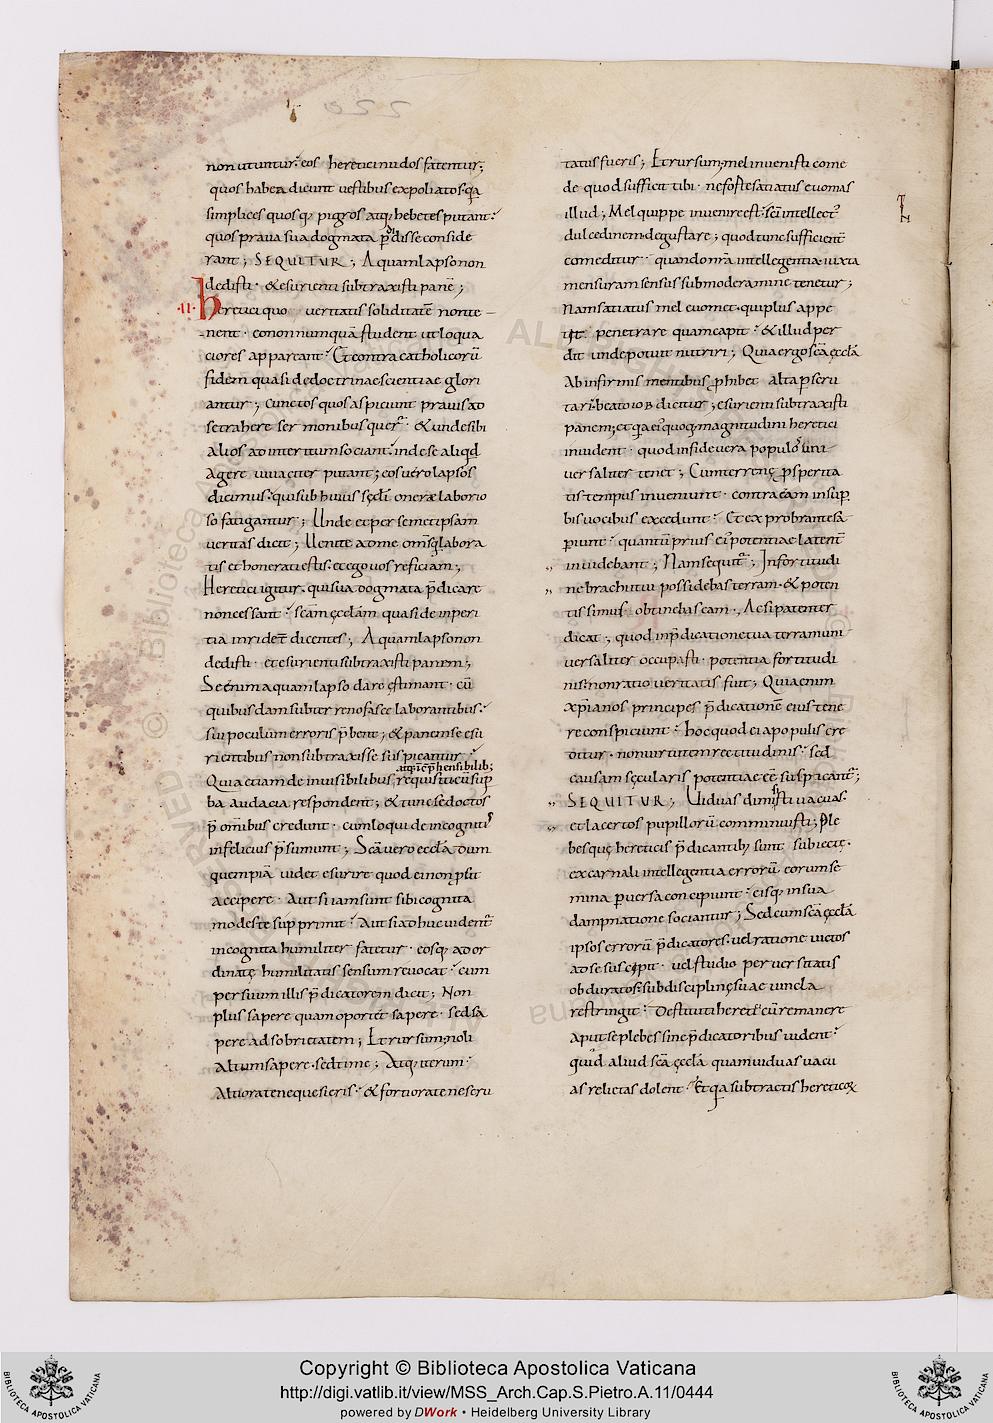 220
non utuntur. eos heretici nudos fatentur;
quos habendi eunt uestibus expoliatos. q̄a
simplices quosq; pigros atq; hebetes putant.
quos praua sua dogmata p̄didisse conside
rant; SEQUITUR; Aquam lapso non
dedisti. & esurienti subtraxisti panē;
.11. heretici quo ueritatis soliditatē non te
nent. eo nonnumquā student ut loqua
ciores appareant. Et contra catholicorū
fidem quasi de doctrinae scientiae glori
antur; cunctos quos aspiciunt prauis ad
se trahere sermonibus querr̄. & unde sibi
alios ad interitum sociant. inde se aliqd̄
agere uiuaciter putant; eos uero lapsos
dicimus. qui sub huius sęcli onere laborio
so fatigantur; Unde et per semetipsam
ueritas dicit; Uenite ad me om̄s q̄ labora
tis et honerati estis. et ego uos reficiam;
Heretici igitur. qui sua dogmata p̄dicare
non cessant. scām ęclām quasi de inperi
tia inridet̄ dicentes; Aquam lapso non
dedisti. et esurienti subtraxisti panem;
Se enim aquam lapso dare ęstimant. cū
quibusdam subterreno fasce laborantibus.
sui poculum erroris p̄bent; & panem se esu
rientibus non subtraxisse suspicantur.
atq; incōp̄hensibilib;
Quia etiam de inuisibilibus, requisiti cū sup
ba audacia respondent; & tunc se doctos
p̄ omnibus credunt. cum loqui de incognitis
infelicius p̄sumunt; Scā uero ecclā dum
quempiā uidet esurire quod ei non p̄sit
accipere. Aut si iam sunt sibi cognita
modeste supprimit. Aut si adhuc uident̄
incognita humiliter fatetur. eosq; ad or
dinatę humilitatis sensum reuocat. cum
per suum illis p̄dicatorem dicit; Non
plus sapere quam oportet sapere. sed sa
pere ad sobrietatem; Et rursum; noli
altum sapere. sed time; Atq; iterum.
Altiora te ne quesieris. & fortiora te ne scru
tatus fueris; Et rursum; mel inuenisti come
de quod sufficit tibi. ne forte satiatus euomas
illud; Mel quippe inuenire est. scī intellect'
dulcedinem degustare; quod tunc sufficient̄
comeditur. quando nr̄a intellegentia iuxta
mensuram sensus sub moderamine tenetur;
Nam satiatus mel euomet. qui plus appe
tit penetrare quam capit. & illud per
dit unde potuit nutriri; Quia ergo scā ęclā
ab infirmis mentibus prohibet alta p̄scru
tari. beato iob dicitur; esurienti subtraxisti
panem; et q̄a ei' quoq; magnitudini heretici
inuident. quod in fide uera populos uni
uersaliter tenet; Cum terrenę p̄speritа
tis tempus inueniunt. contra eam in sup̄
bis uocibus excedunt. Et exprobrant esā
p̄iunt. quantū prius ei' potentiae latent̄
inuidebant; Nam sequitur; In fortitudi
ne brachii tui possidebas terram. & poten
tissimus obtinebas eam; Ac si patenter
dicat; quod in p̄dicatione tua terram uni
uersaliter occupasti. potentia fortitudi
nis. non ratio ueritatis fuit; Quia enim
xp̄ianos principes p̄dicationē eius tene
re conspiciunt. hoc quod ei a populis cre
ditur. non uirtutem rectitudinis. sed
causam sęcularis potentiae eē suspicant̄;
SEQUITUR; Uiduas dimisisti uacuas.
et lacertos pupillorū comminuisti; Ple
besquę hereticis p̄dicantib; sunt subiectę.
ex carnali intellegentia errorū eorum se
mina peruersa concipiunt. eisq; in sua
dampnatione sociantur; Sed cum scā ęcclā
ipsos errorū p̄dicatores. uel ratione uictos
ad se suscipit. uel studio peruersitatis
obduratos. sub disciplinę suae uincla
restringit. Destituti heretici cū remanere
aput se plebes sine p̄dicatoribus uident.
quid aliud scā ęcclā quam uiduas uacu
as relictas dolent. Et q̄a subtractis hereticoꝝ
Copyright © Biblioteca Apostolica Vaticana
http://digi.vatlib.it/view/MSS_Arch.Cap.S.Pietro.A.11/0444
powered by DWork • Heidelberg University Library
BIBLIOTECA APOSTOLICA VATICANA
BIBLIOTECA APOSTOLICA VATICANA